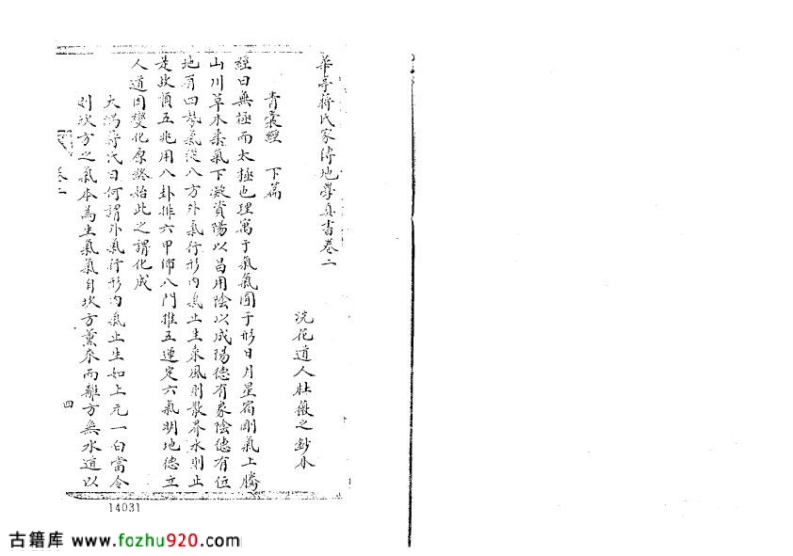 華亭蔣氏家傳地學真書卷二
浣花道人杜薇之鈔本
青囊經 下篇
經曰無極而太極也理寓于氣氣囿于形日月星宿剛氣上騰
山川草木柔氣下凝資陽以昌用陰以成陽德有象陰德有位
地有四勢氣從八方外氣行形內氣止生乘風則散界水則止
是故順五兆用八卦排六甲布八門推五運定六氣明地德立
人道因變化原終始此之謂化成
大鴻蔣氏曰何謂外氣行形內氣止生如上元一白當令
則坎方之氣本為生氣氣自坎方薰來而離方無水道以
卷二
四
14031
古籍库 www.fozhu920.com